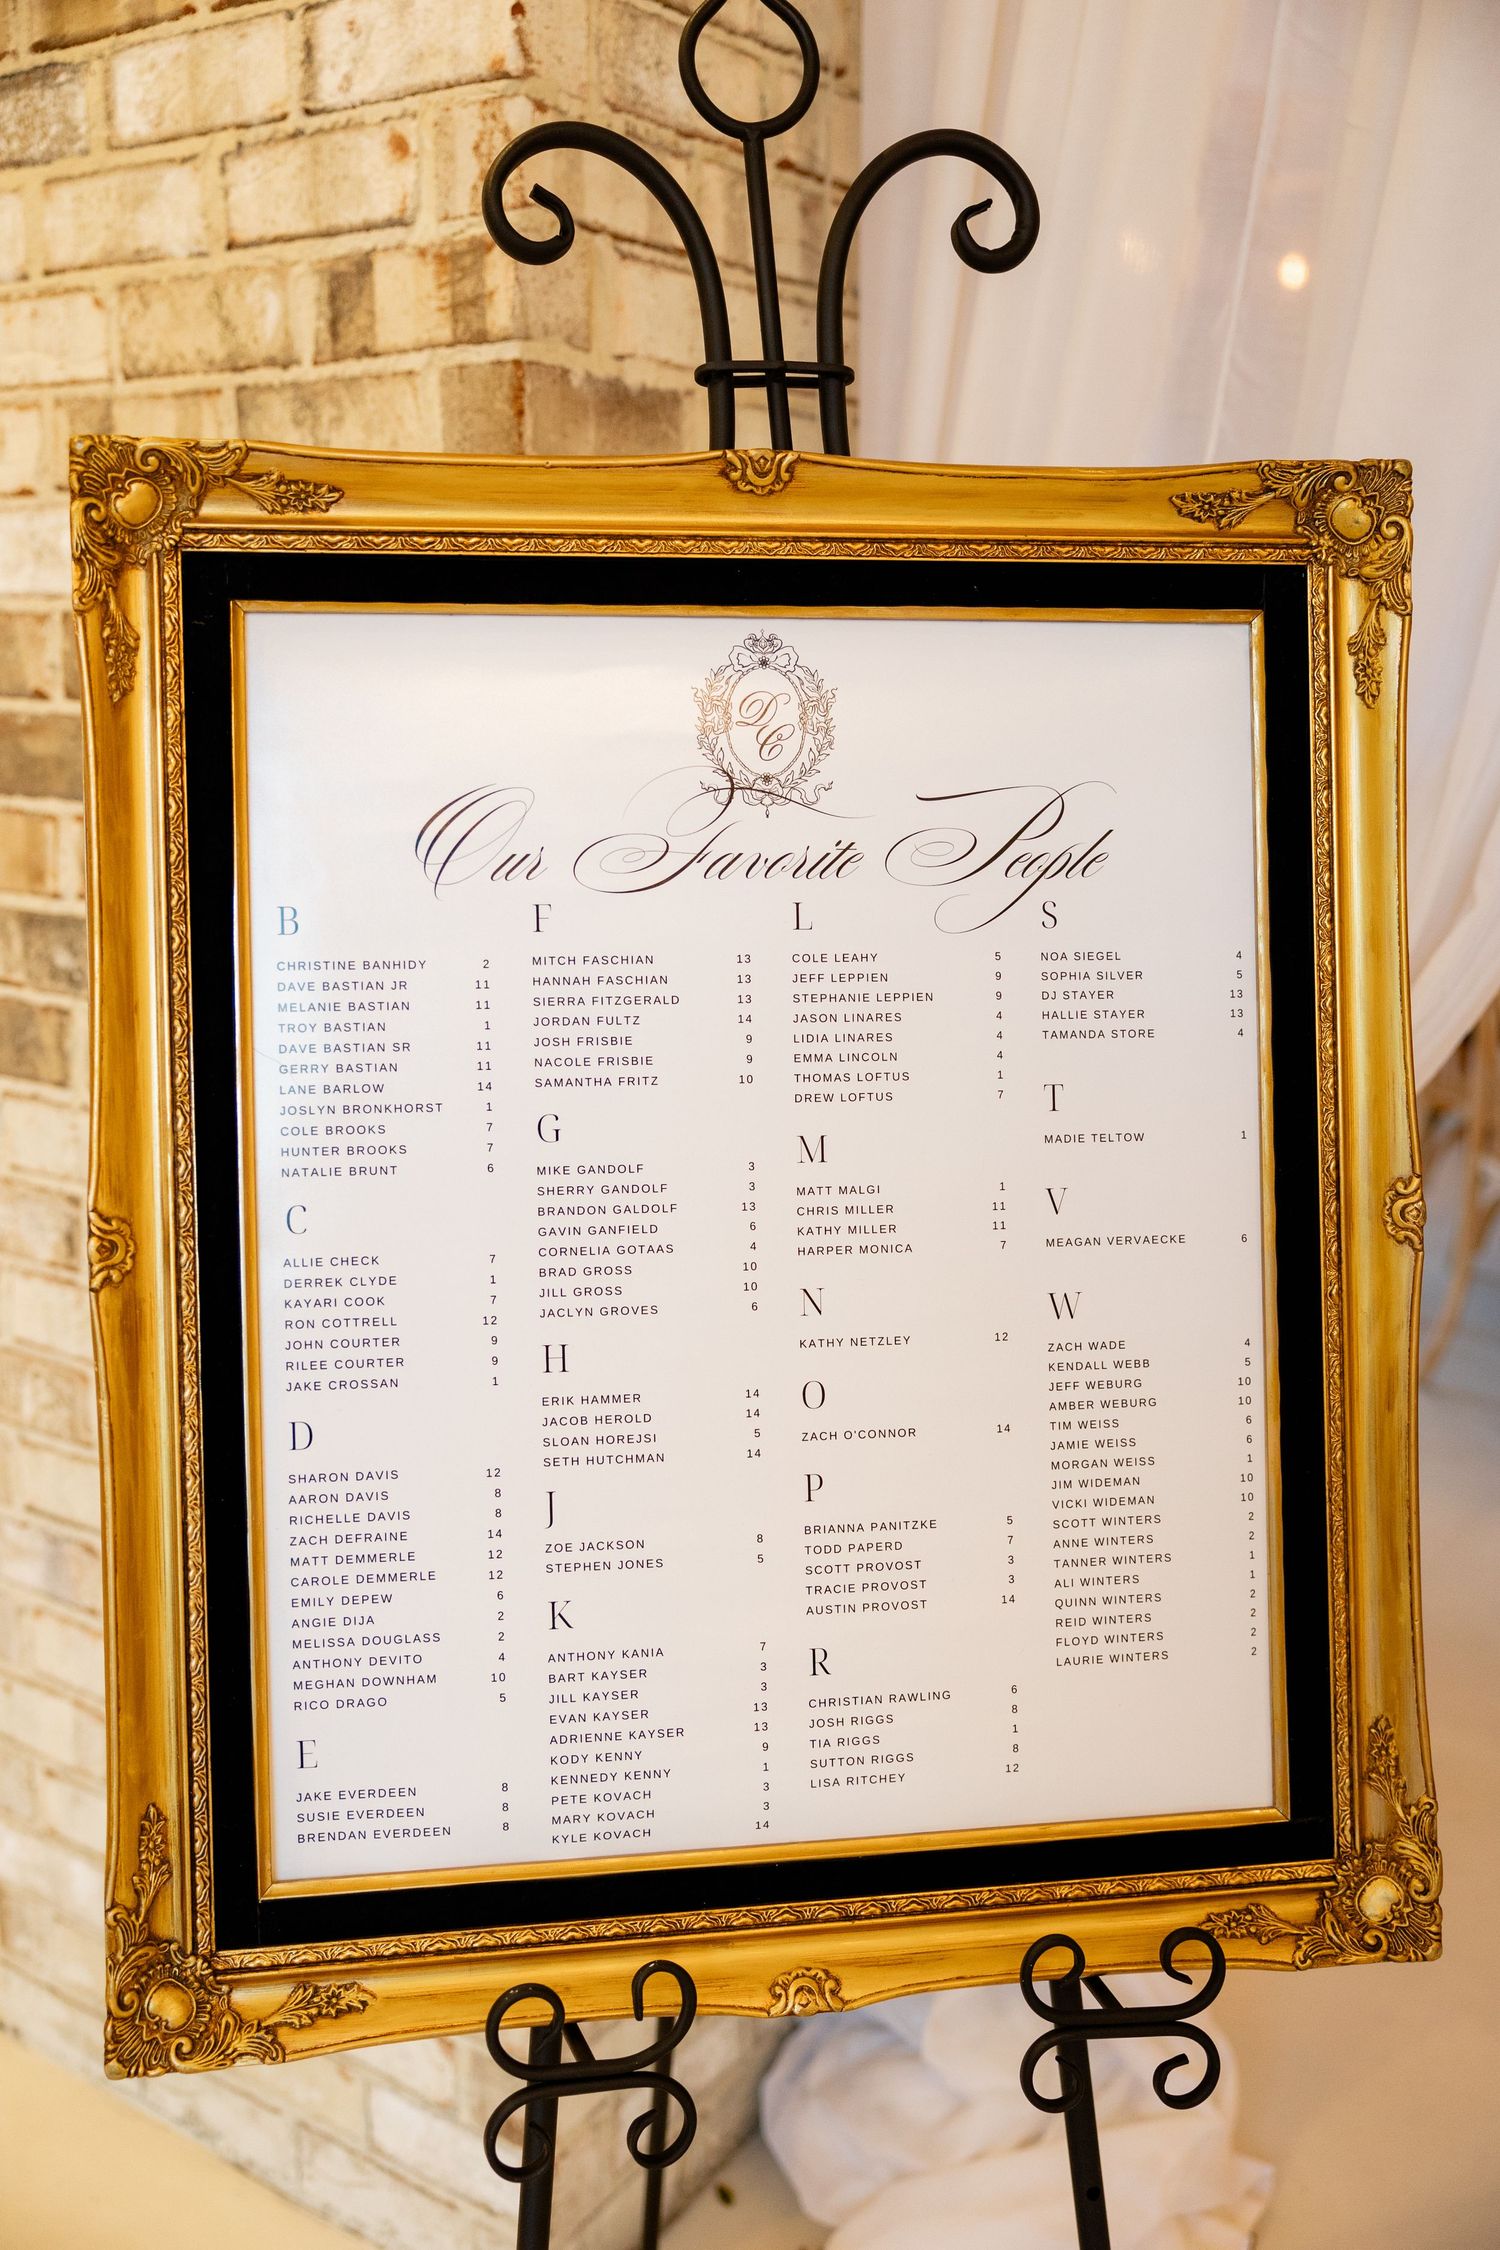 DC
Our Favorite People
B
CHRISTINE BANHIDY 2
DAVE BASTIAN JR 11
MELANIE BASTIAN 11
TROY BASTIAN 1
DAVE BASTIAN SR 11
GERRY BASTIAN 11
LANE BARLOW 14
JOSLYN BRONKHORST 1
COLE BROOKS 7
HUNTER BROOKS 7
NATALIE BRUNT 6
C
ALLIE CHECK 7
DERREK CLYDE 1
KAYARI COOK 7
RON COTTRELL 12
JOHN COURTER 9
RILEE COURTER 9
JAKE CROSSAN 1
D
SHARON DAVIS 12
AARON DAVIS 8
RICHELLE DAVIS 8
ZACH DEFRAINE 14
MATT DEMMERLE 12
CAROLE DEMMERLE 12
EMILY DEPEW 6
ANGIE DIJA 2
MELISSA DOUGLASS 2
ANTHONY DEVITO 4
MEGHAN DOWNHAM 10
RICO DRAGO 5
E
JAKE EVERDEEN 8
SUSIE EVERDEEN 8
BRENDAN EVERDEEN 8
F
MITCH FASCHIAN 13
HANNAH FASCHIAN 13
SIERRA FITZGERALD 13
JORDAN FULTZ 14
JOSH FRISBIE 9
NACOLE FRISBIE 9
SAMANTHA FRITZ 10
G
MIKE GANDOLF 3
SHERRY GANDOLF 3
BRANDON GALDOLF 13
GAVIN GANFIELD 6
CORNELIA GOTAAS 4
BRAD GROSS 10
JILL GROSS 10
JACLYN GROVES 6
H
ERIK HAMMER 14
JACOB HEROLD 14
SLOAN HOREJSI 5
SETH HUTCHMAN 14
J
ZOE JACKSON 8
STEPHEN JONES 5
K
ANTHONY KANIA 7
BART KAYSER 3
JILL KAYSER 3
EVAN KAYSER 13
ADRIENNE KAYSER 13
KODY KENNY 9
KENNEDY KENNY 1
PETE KOVACH 3
MARY KOVACH 3
KYLE KOVACH 14
L
COLE LEAHY 5
JEFF LEPPIEN 9
STEPHANIE LEPPIEN 9
JASON LINARES 4
LIDIA LINARES 4
EMMA LINCOLN 4
THOMAS LOFTUS 1
DREW LOFTUS 7
M
MATT MALGI 1
CHRIS MILLER 11
KATHY MILLER 11
HARPER MONICA 7
N
KATHY NETZLEY 12
O
ZACH O'CONNOR 14
P
BRIANNA PANITZKE 5
TODD PAPERD 7
SCOTT PROVOST 3
TRACIE PROVOST 3
AUSTIN PROVOST 14
R
CHRISTIAN RAWLING 6
JOSH RIGGS 8
TIA RIGGS 1
SUTTON RIGGS 8
LISA RITCHEY 12
S
NOA SIEGEL 4
SOPHIA SILVER 5
DJ STAYER 13
HALLIE STAYER 13
TAMANDA STORE 4
T
MADIE TELTOW 1
V
MEAGAN VERVAECKE 6
W
ZACH WADE 4
KENDALL WEBB 5
JEFF WEBURG 10
AMBER WEBURG 10
TIM WEISS 6
JAMIE WEISS 6
MORGAN WEISS 1
JIM WIDEMAN 10
VICKI WIDEMAN 10
SCOTT WINTERS 2
ANNE WINTERS 2
TANNER WINTERS 1
ALI WINTERS 1
QUINN WINTERS 2
REID WINTERS 2
FLOYD WINTERS 2
LAURIE WINTERS 2